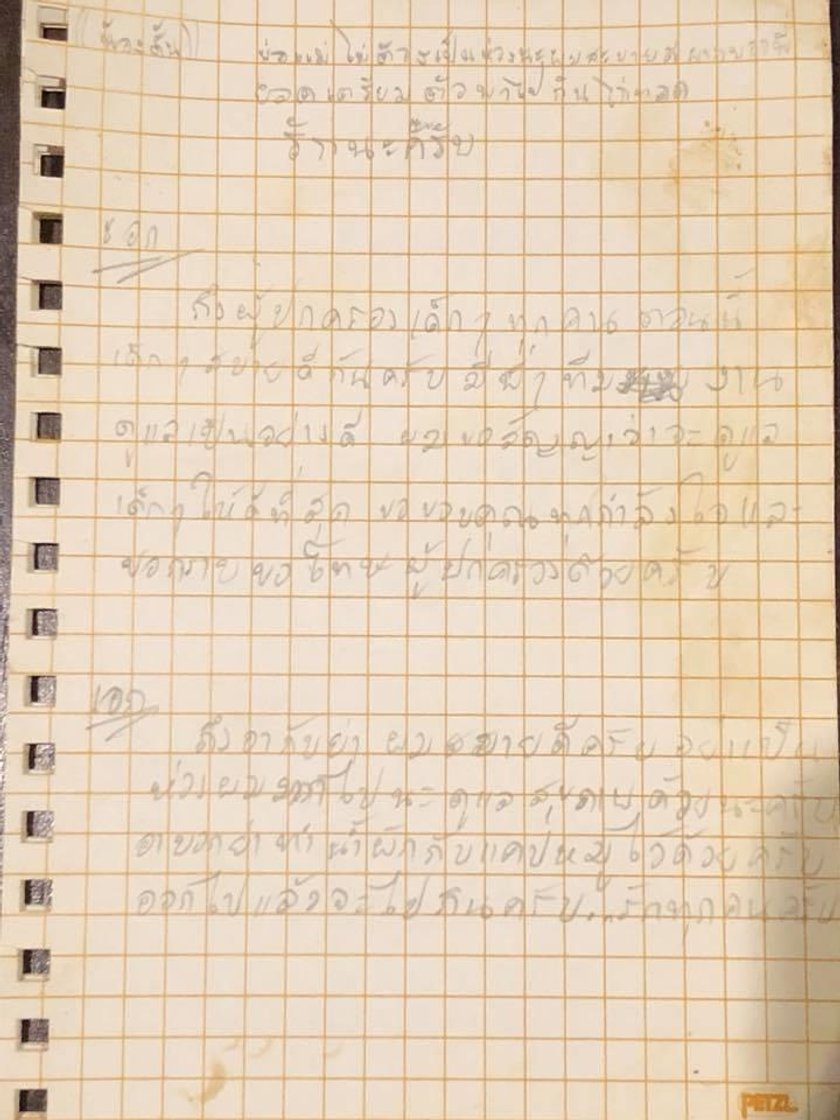 พ่อแม่ ไม่ต้องเป็นห่วงนะผมสบายดี
เตรียมตัวพาไปกินไก่ทอด
ด้วยนะครับ
ถึงผู้ปกครองเด็กๆ ทุกคน ตอนนี้
เด็กๆ สบายดีกันครับ มีพี่ๆ ทีม งาน
ดูแลเป็นอย่างดี ผมขอสัญญาว่าจะดูแล
เด็กๆ ให้ดีที่สุด ขอขอบคุณทุกกำลังใจและ
ขอกราบขอโทษผู้ปกครองด้วยครับ
เอก
ถึงอากับย่า ผมสบายดีครับ อย่าเป็น
ห่วงผม ไปนะ ดูแลสุขภาพด้วยนะครับ
ย่าทำน้ำผักกับแคปหมูไว้ด้วยครับ
ออกไปแล้วจะไปกินครับ..รักทุกคนครับ
PETZL